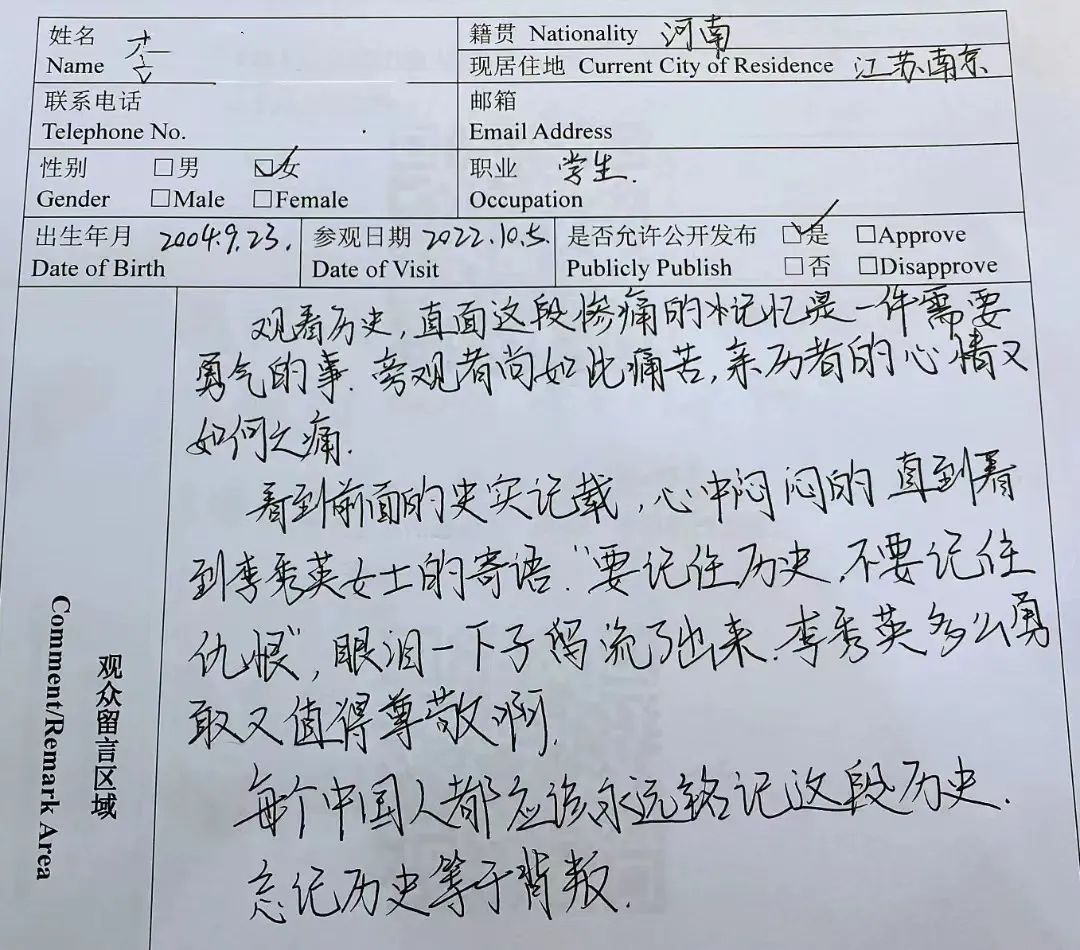 姓名 李 籍贯 Nationality 河南
Name 现居住地 Current City of Residence 江苏南京
联系电话 邮箱
Telephone No. Email Address
性别 □男 ☑女 职业 学生.
Gender □Male □Female Occupation
出生年月 2004.9.23. 参观日期 2022.10.5. 是否允许公开发布 ☑是 □Approve
Date of Birth Date of Visit Publicly Publish □否 □Disapprove
观看历史,直面这段惨痛的记忆是一件需要
勇气的事.旁观者尚如此痛苦,亲历者的心情又
如何之痛.
看到前面的史实记载,心中闷闷的 直到看
到李秀英女士的寄语.“要记住历史.不要记住
仇恨”,眼泪一下子留流了出来.李秀英多么勇
敢又值得尊敬啊.
每个中国人都应该永远铭记这段历史.
忘记历史等于背叛.
观众留言区域
Comment/Remark Area